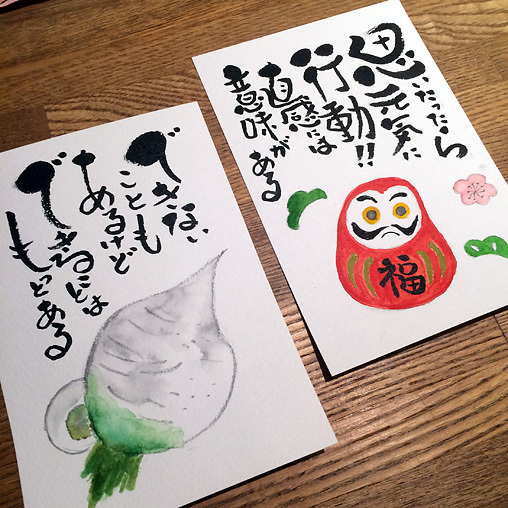 思いたったら
元気に
行動!!
直感には
意味がある
福
できない
ことも
あるけど
できることは
もっとある